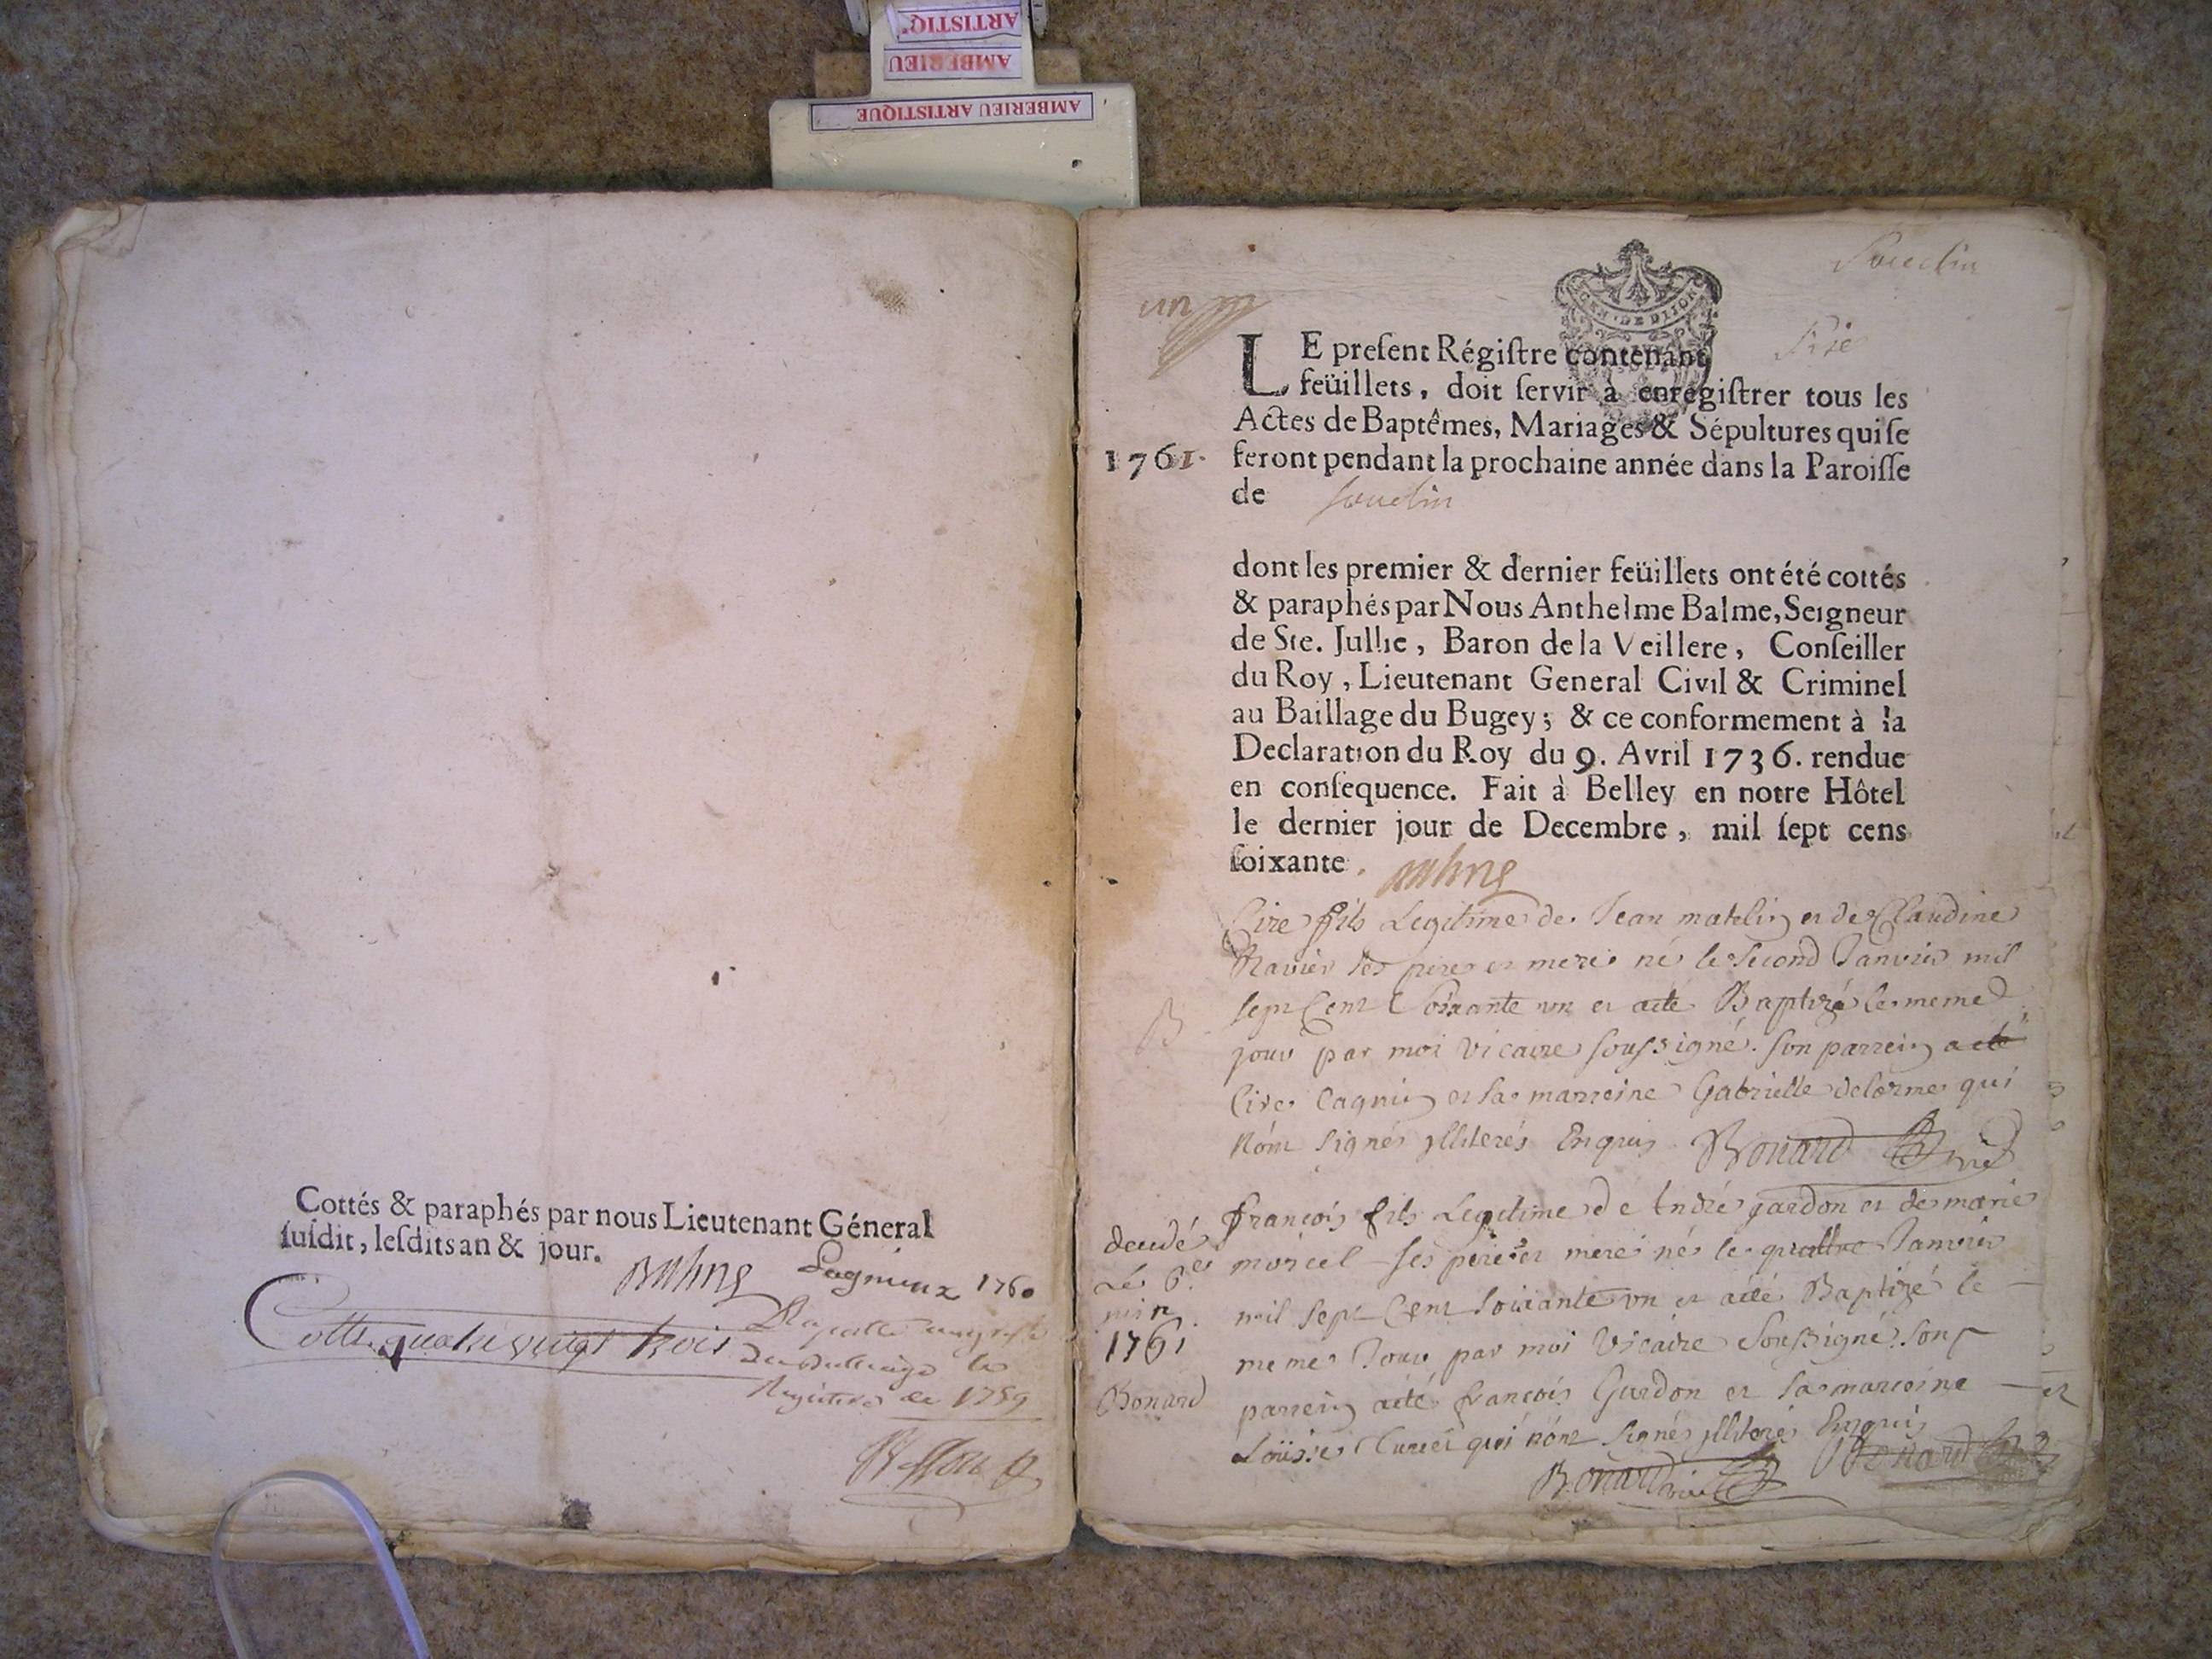 ARTISTIQ'
AMBERIEU
AMBERIEU ARTISTIQUE
Cottés & paraphés par nous Lieutenant Géneral
ſuſdit, leſdits an & jour.
Lagnieux 1760
Cotte quatre vingt trois
Registres de 1759
Souclin
un
GEN · DE DIJON
LE preſent Régiſtre contenant
feüillets, doit ſervir à enrégiſtrer tous les
Actes de Baptêmes, Mariages & Sépultures qui ſe
1761. feront pendant la prochaine année dans la Paroiſſe
de Souclin
dont les premier & dernier feüillets ont été cottés
& paraphés par Nous Anthelme Balme, Seigneur
de Ste. Jullie, Baron de la Veillere, Conſeiller
du Roy, Lieutenant General Civil & Criminel
au Baillage du Bugey; & ce conformement à la
Declaration du Roy du 9. Avril 1736. rendue
en conſequence. Fait à Belley en notre Hôtel
le dernier jour de Decembre, mil ſept cens
ſoixante.
Cire fils Legitime de Jean matelin et de Claudine
Ravier ses pere et mere né le Second Janvier mil
B sept Cent Soixante un et aeté Baptizé le meme
jour par moi Vicaire soussigné. son parrein a eté
Cire Cagnin et sa marreine Gabrielle delorme qui
n'ont signés jlliterés Enquis Bonard vic
françois fils Legitime de André gardon et de marie
morcel ses pere et mere né le quattre Janvier
mil sept Cent Soixante un et aété Baptizé le
meme Jour par moi Vicaire Soussigné. Son
parrein aété françois Gardon et sa marreine
Loüise qui n'ont signés jlliterés Enquis
Bonard vic Bonard
decedé
Le 6.
1761
Bonard